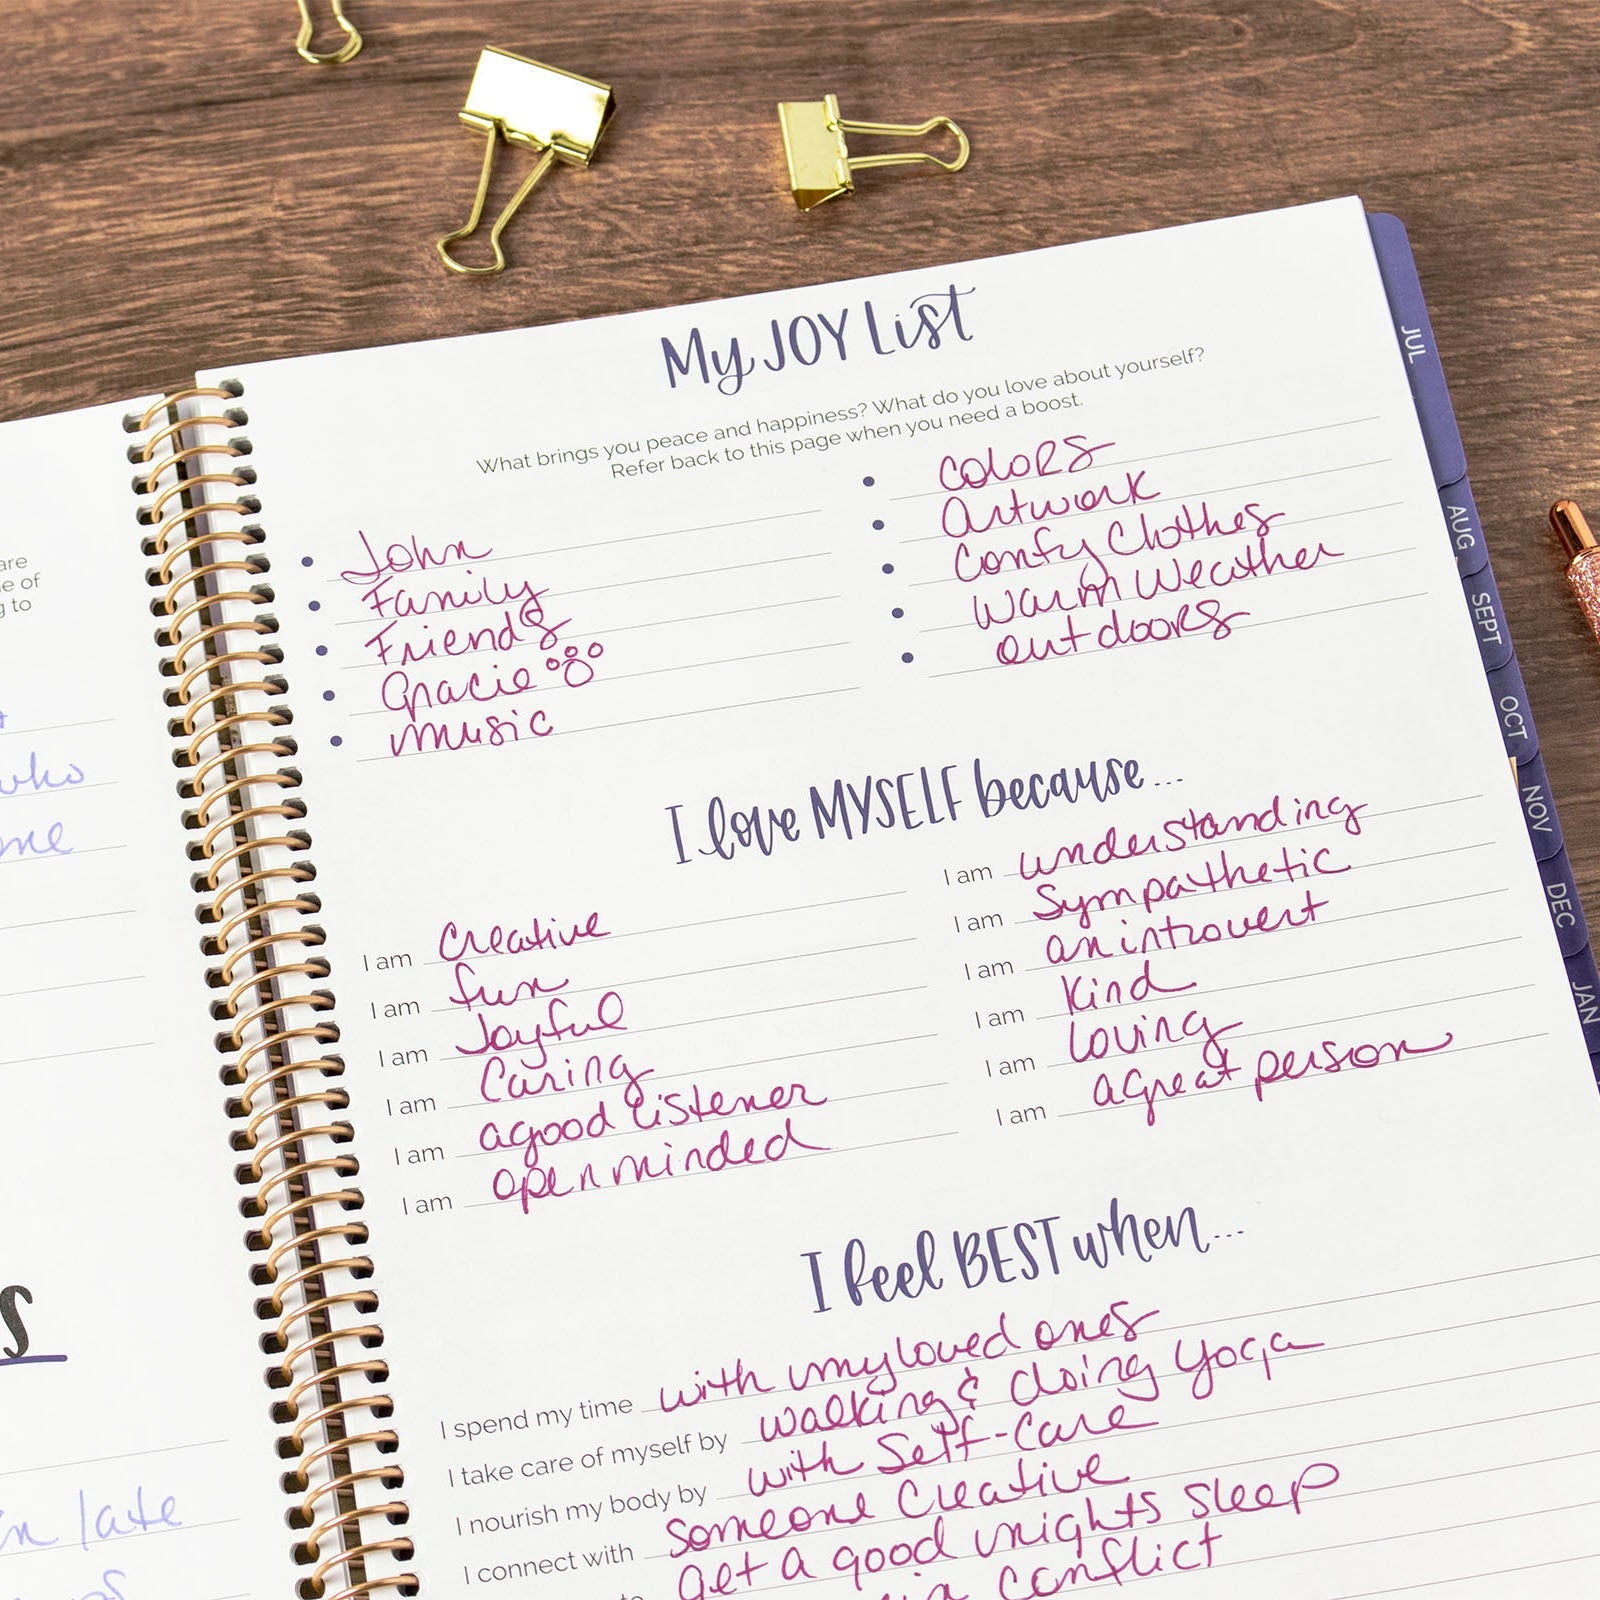 are
e of
g to
who
me
S
in late
My JOY List
What brings you peace and happiness? What do you love about yourself?
Refer back to this page when you need a boost.
• John
• Family
• Friends
• Gracie
• music
• colors
• Artwork
• Comfy Clothes
• Warm Weather
• outdoors
I love MYSELF because...
I am Creative
I am fun
I am Joyful
I am Caring
I am a good listener
I am open minded
I am understanding
I am Sympathetic
I am an introvert
I am Kind
I am loving
I am a great person
I feel BEST when...
I spend my time with my loved ones
I take care of myself by walking & doing yoga
I nourish my body by with Self-Care
I connect with someone Creative
get a good nights sleep
conflict
JUL
AUG
SEPT
OCT
NOV
DEC
JAN